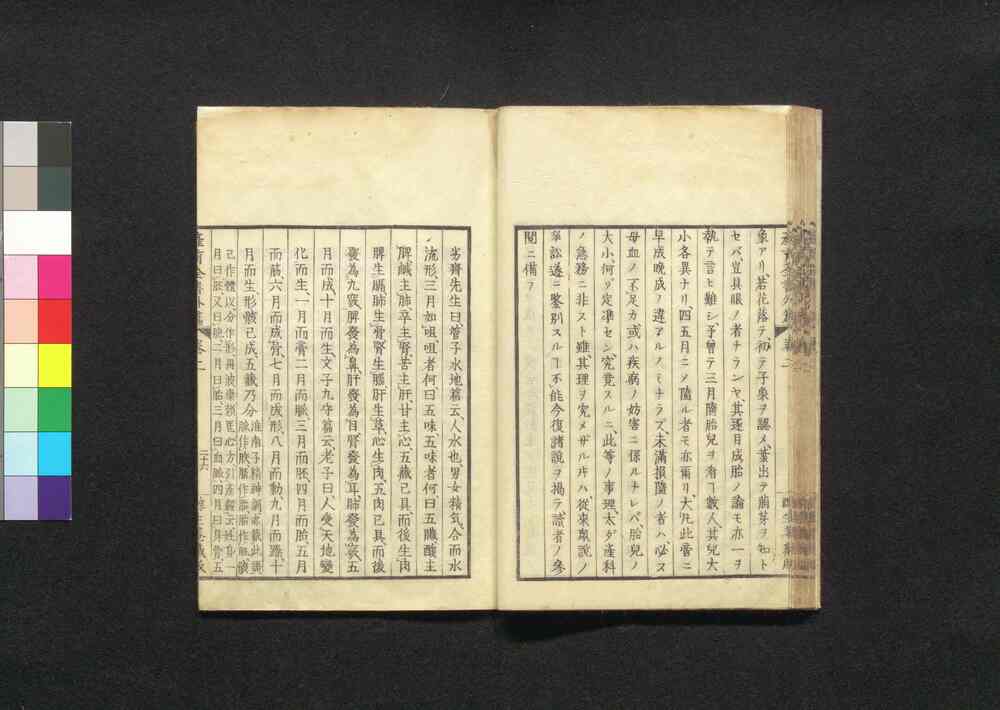 象アリ、若花落テ初テ子象ヲ認メ、葉出テ萠芽ヲ知ト
セバ、豈具眼ノ者ナランヤ、其逐月成胎ノ論モ亦一ヲ
執テ言ヒ難シ、予曾テ三月墮胎兒ヲ看ヿ數人、其兒大
小各異ナリ、四五月ニノ墮ル者モ亦爾リ、大凡此當ニ
早成晚成ノ違アルノミナラズ、未滿損墮ノ者ハ、必ス
母血ノ不足カ或ハ疾病ノ妨害ニ係ルナレバ、胎兒ノ
大小、何ゾ定準セン、究竟スルニ、此等ノ事理、太ダ產科
ノ急務ニ非スト雖、其理ヲ究メザル片ハ、從來眾說ノ
爭訟遂ニ鑒別スルヿ不能、今復諸說ヲ揭テ讀者ノ參
閱ニ備フ
劣齋先生曰、管子水地篇云、人水也、男女精氣合而水
流形、三月如咀、咀者何、曰五味、五味者何、曰五臟、酸主
脾、鹹主肺、辛主腎、苦主肝、甘主心、五藏已具、而後生肉
脾生膈、肺生骨、腎生腦、肝生革、心生肉、五肉已具、而後
發為九竅、脾發為鼻、肝發為目、腎發為耳、肺發為竅、五
月而成、十月而生、文子九守篇云、老子曰、人受天地變
化而生、一月而膏、二月而脈、三月而胚、四月而胎、五月
而筋、六月而成骨、七月而成形、八月而動、九月而躁、十
月而生、形骸已成、五藏乃分
淮南子精神訓亦載此與
脈作胅脈作胚胎作肌
己作體以分作形丹波康賴醫心方引產經云妊身一
月曰胚又曰胞二月曰胎三月曰血脈四月曰具骨五
產育全書外篇
卷二
二十六